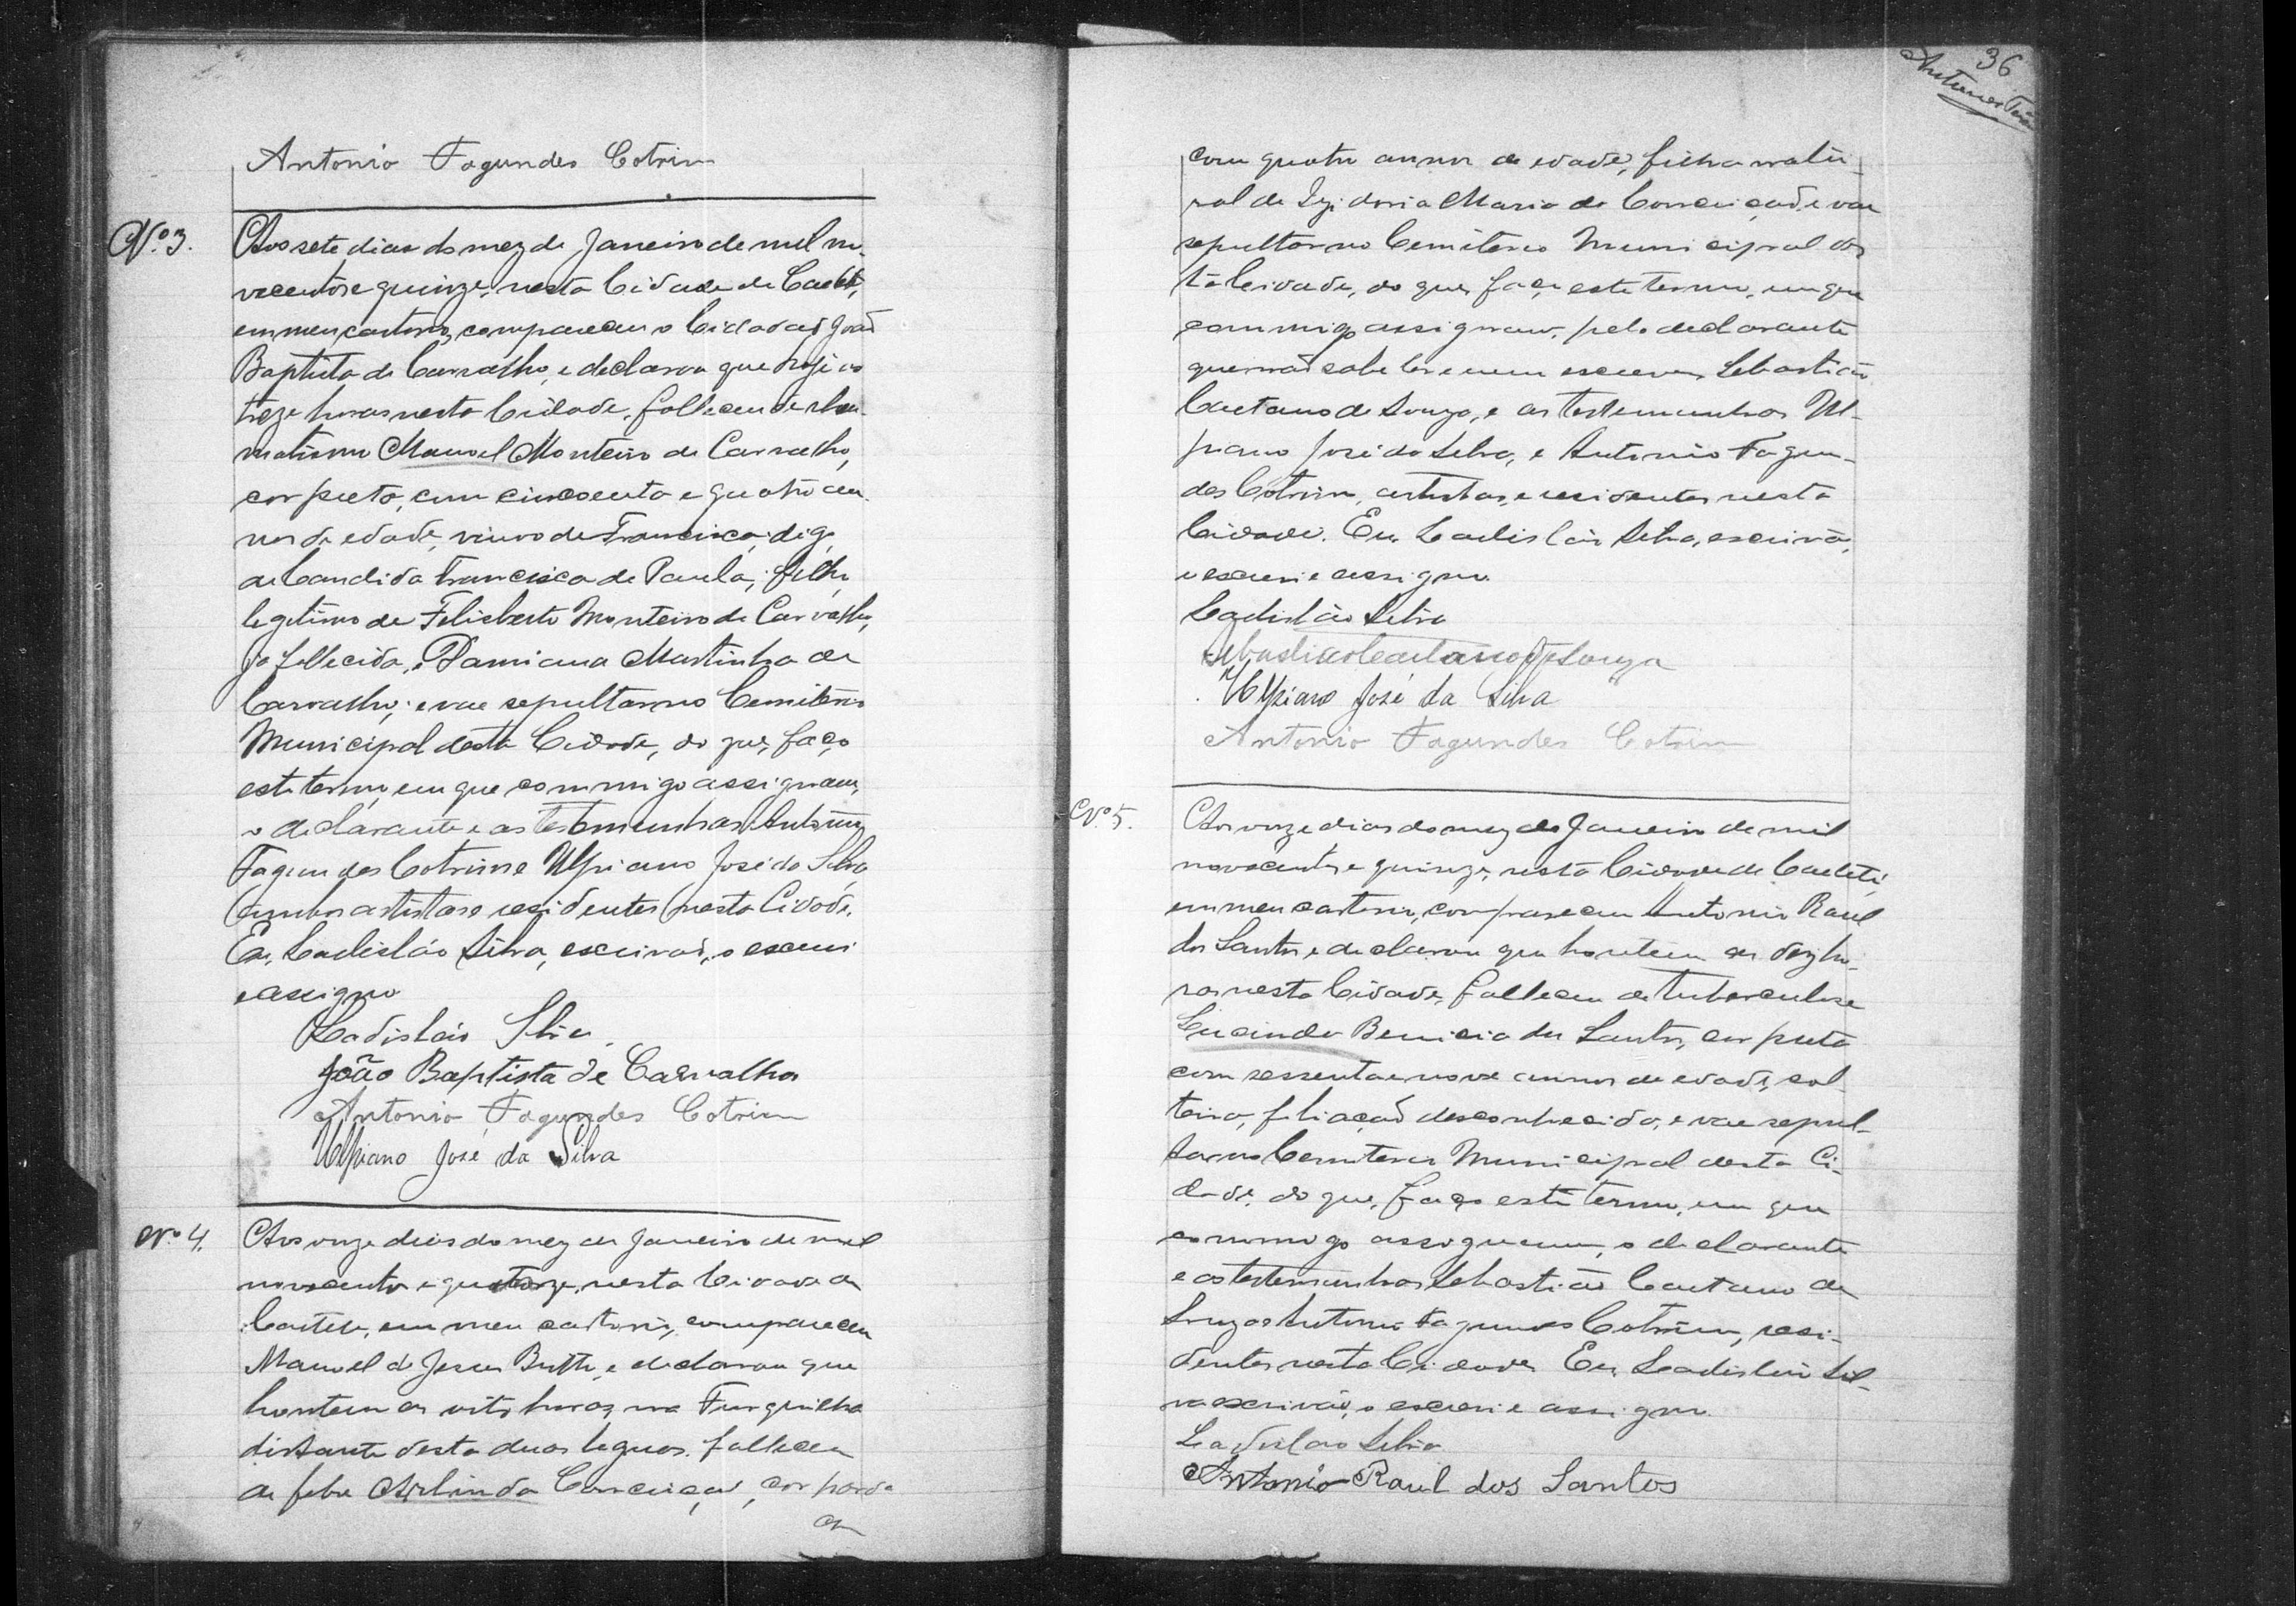 Antonio Fagundes Cotrim
Nº 3. Aos sete dias do mez de Janeiro de mil no-
vecentos e quinze, nesta Cidade de Caeteté,
em meu cartorio, compareceu o Cidadão João
Baptista de Carvalho, e declarou que hoje as
treze horas nesta Cidade, falleceu de rheu-
matismo Manoel Monteiro de Carvalho,
cor preto, com cincoenta e quatro an-
nos de edade, viuvo de Francisca, digo,
de Candida Francisca de Paula; filho
legitimo de Felisberto Monteiro de Carvalho,
já fallecido, e Damiana Martinha de
Carvalho; e vae sepultar no Cemiterio
Municipal desta Cidade, do que, faço
este termo, em que commigo assignam,
o declarante e as testemunhas Antonio
Fagundes Cotrim e Ulpiano José da Silva
ambos artistas e residentes nesta Cidade.
Eu, Ladisláo Silva, escrivão, o escrevi
e assigno
Ladisláo Silva.
João Baptista de Carvalho
Antonio Fagundes Cotrim
Ulpiano José da Silva
Nº 4. Aos onze dias do mez de Janeiro de mil
novecentos e quatorze, nesta Cidade de
Caeteté, em meu cartorio, compareceu
Manoel de Jesus Britto, e declarou que
hontem as oito horas, na Furquilha
distante desta duas leguas. falleceu
de febre Arlinda Conceição, cor parda
36
com quatro annos de edade, filha natu-
ral de Izidoria Maria da Conceição, e vae
sepultar no Cemiterio Municipal des-
ta Cidade, do que, faço este termo, em que
commigo assignam, pelo declarante
que não sabe ler e nem escrever, Sebastião
Caetano de Souza, e as testemunhas Ul-
piano José da Silva, e Antonio Fagun-
des Cotrim, artistas, e residentes nesta
Cidade. Eu Ladisláo Silva, escrivão,
o escrevi e assigno.
Ladisláo Silva
Sebastião Caetano de Souza
Ulpiano José da Silva
Antonio Fagundes Cotrim
Nº 5. Aos onze dias do mez de Janeiro de mil
novecentos e quinze, nesta Cidade de Caeteté,
em meu cartorio, compareceu Antonio Raul
dos Santos e declarou que hontem as dez ho-
ras nesta Cidade, falleceu de tuberculose
Lucinda Benicia dos Santos, cor preta
com sessenta e nove annos de edade, sol-
teira, filiação desconhecida, e vae sepul-
tar no Cemiterio Municipal desta Ci-
dade, do que, faço este termo, em que
commigo assignam, o declarante
e as testemunhas Sebastião Caetano de
Souza e Antonio Fagundes Cotrim, resi-
dentes nesta Cidade. Eu, Ladisláo Sil-
va escrivão, o escrevi e assigno.
Ladisláo Silva
Antonio Raul dos Santos